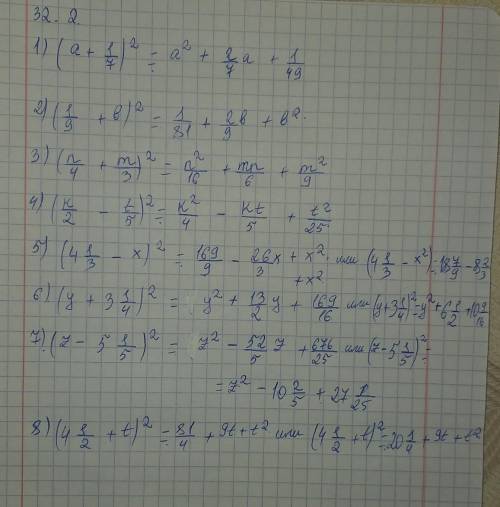 32. 2.
1) (a + 1/7)² = a² + 2/7 a + 1/49
2) (1/9 + b)² = 1/81 + 2b/9 + b².
3) (n/4 + m/3)² = n²/16 + mn/6 + m²/9
4) (k/2 - t/5)² = k²/4 - kt/5 + t²/25
5) (4 1/3 - x)² = 169/9 - 26x/3 + x² или (4 1/3 - x²) = 18 7/9 - 8 2/3
+ x²
6) (y + 3 1/4)² = y² + 13/2 y + 169/16 или (y + 3 1/4)² = y² + 6 1/2 + 10 9/16
7) (z - 5 1/5)² = z² - 52/5 z + 676/25 или (z - 5 1/5)² =
= z² - 10 2/5 + 27 1/25
8) (4 1/2 + t)² = 81/4 + 9t + t² или (4 1/2 + t)² = 20 1/4 + 9t + t²